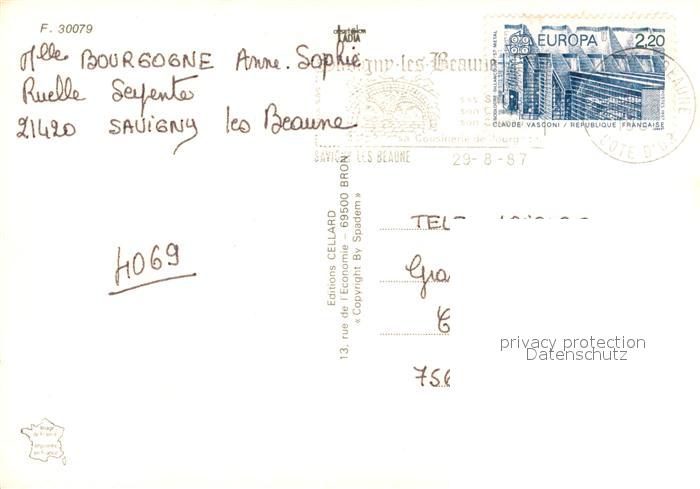 F. 30079
Mlle BOURGOGNE Anne. Sophie
Ruelle Serpente
21420 SAVIGNY les Beaune
4069
Savigny-les-Beaune
Cousinerie de Bourgogne
SAVIGNY LES BEAUNE 29-8-87
EUROPA 2,20
CLAUDE VASCONI / REPUBLIQUE FRANÇAISE
BEAUNE
COTE D'OR
Editions CELLARD
13. rue de l'Economie - 69500 BRON
« Copyright By Spadem »
TEL
Gra
C
756
privacy protection
Datenschutz
Image
de France
imprimée
en France